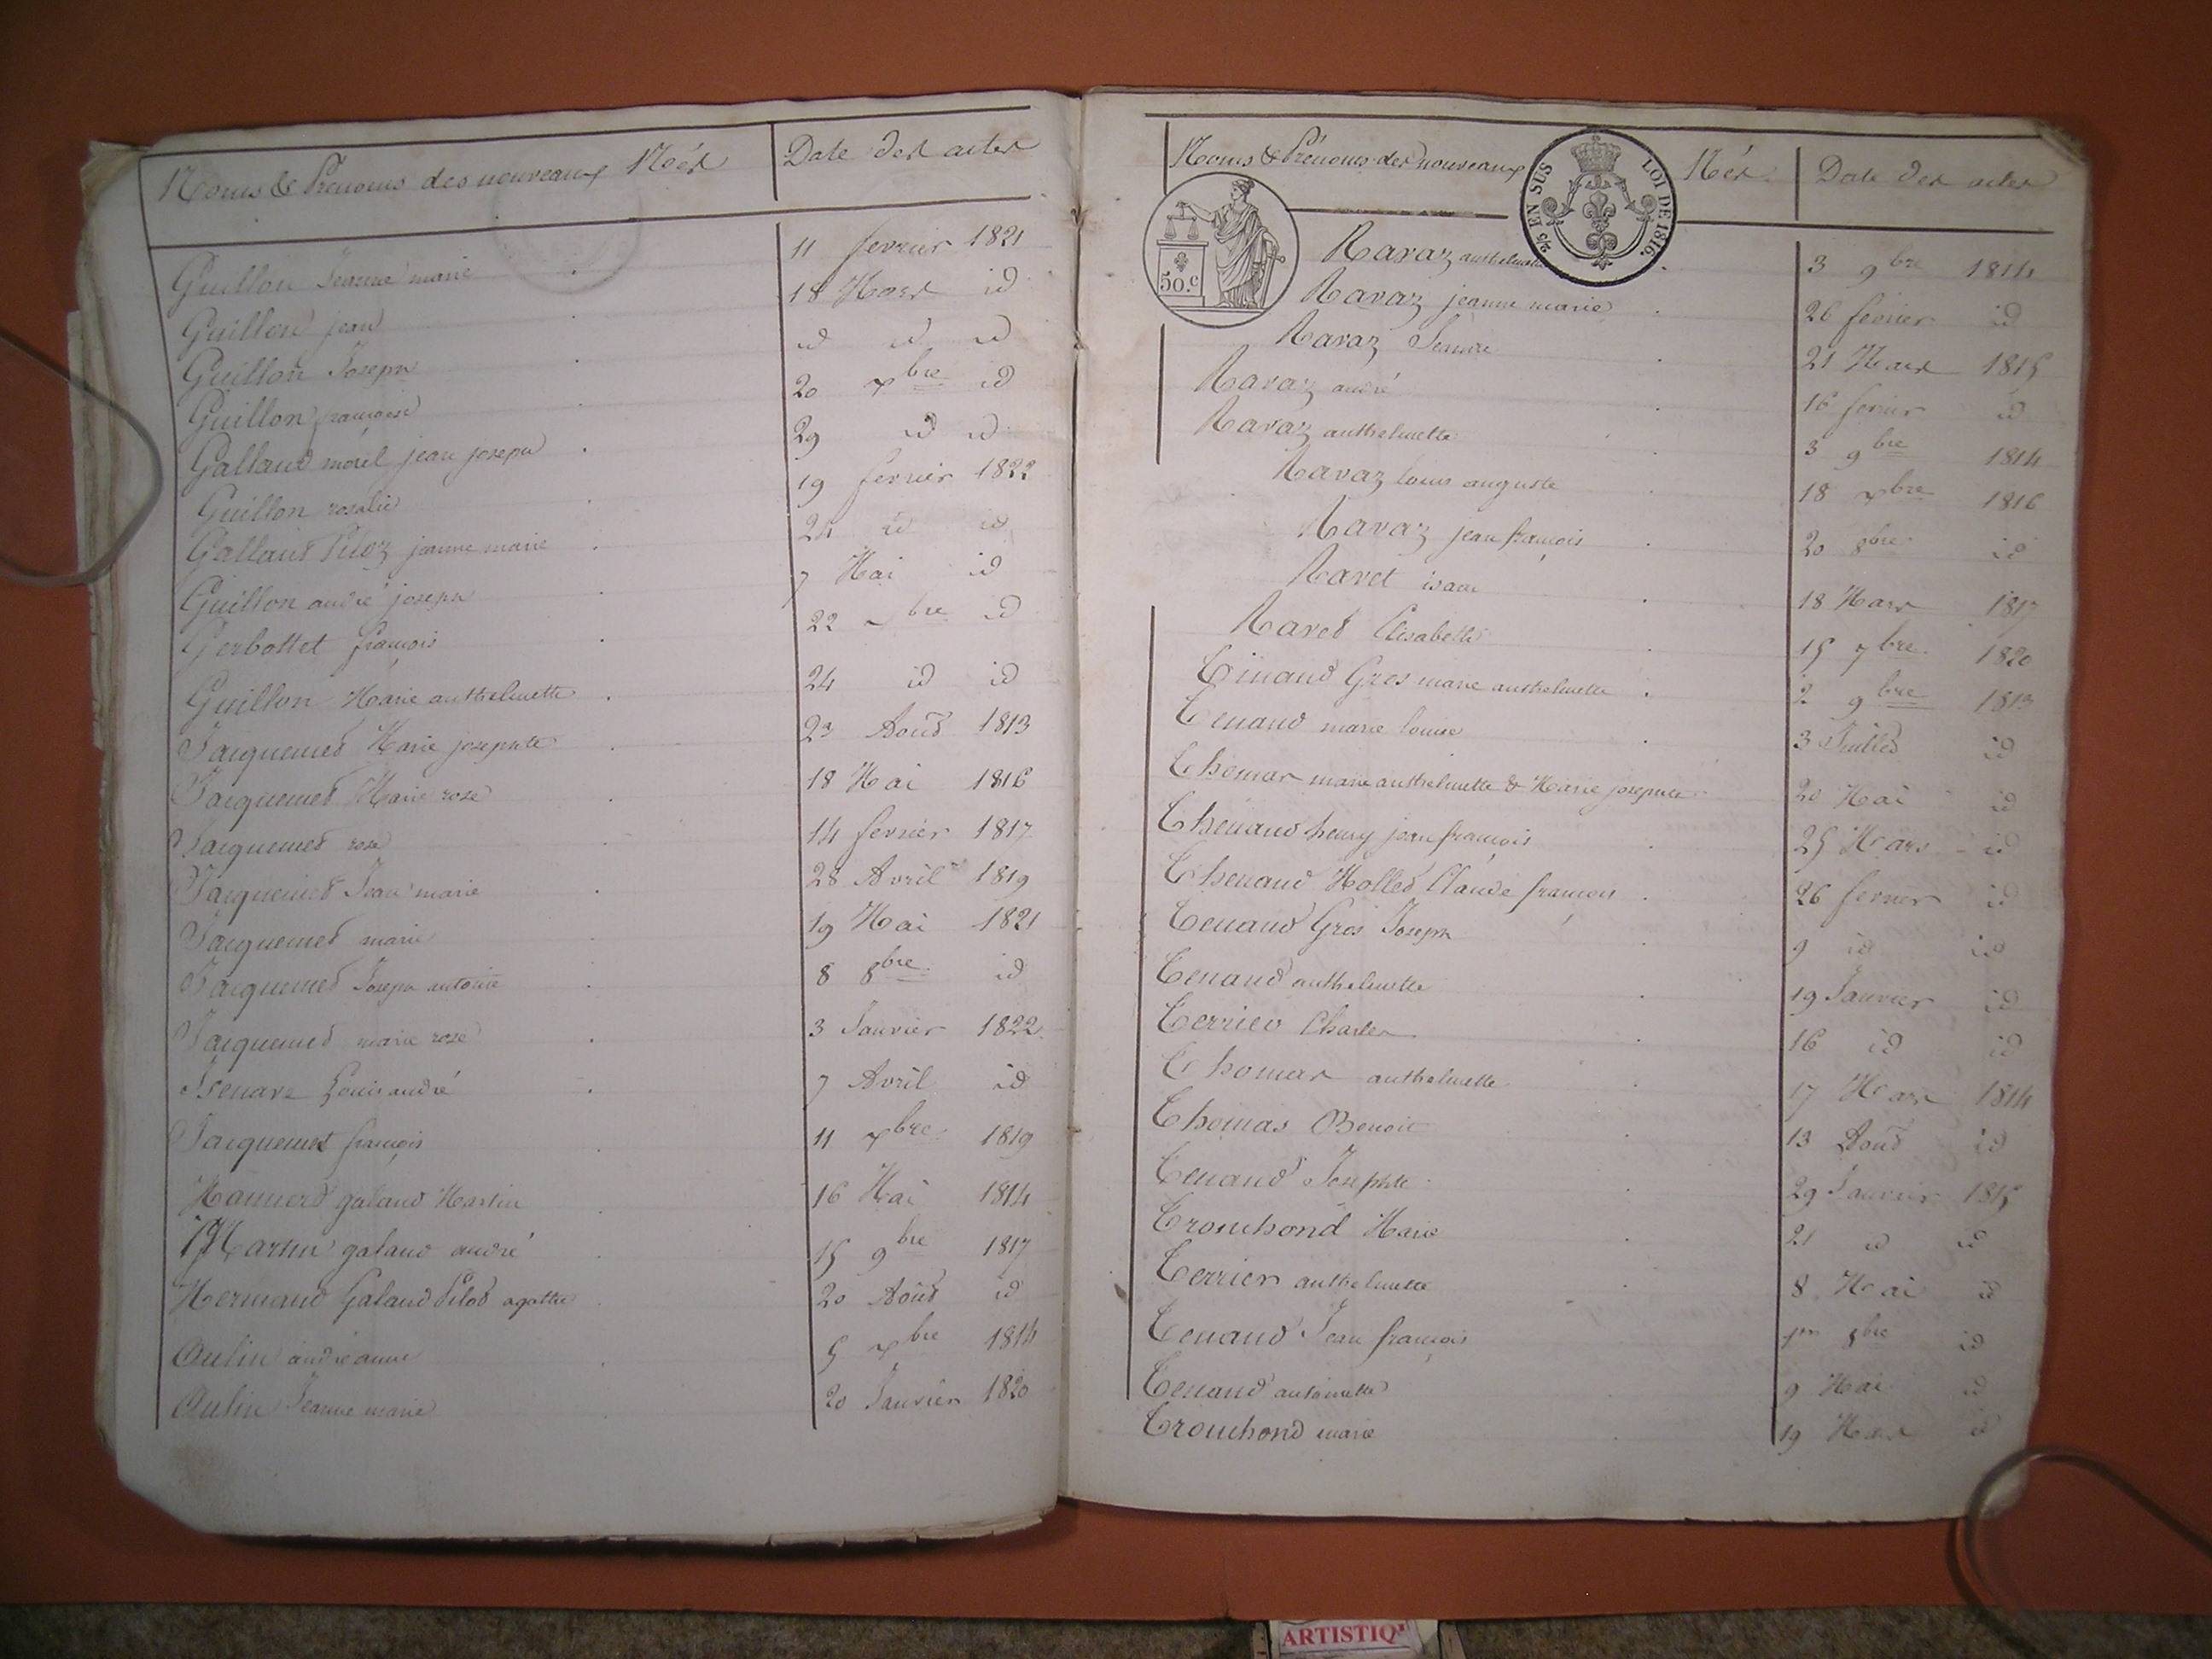 Noms & Prénoms des nouveaux Nés Date des actes
Guillon Jeanne marie 11 fevrier 1821
Guillon jean 18 Mars id
Guillon Joseph id id id
Guillon françoise 20 xbre id
Galland morel jean joseph 29 id id
Guillon rosalie 19 fevrier 1822
Galland Piloz jeanne marie 24 id id
Guillon andré joseph 7 Mai id
Gerbottet françois 22 bre id
Guillon Marie anthelmette 24 id id
Jacquemet Marie josephte Août 1813
Jacquemet Marie rose 18 Mai 1816
Jacquemet rose 14 fevrier 1817
Jacquemet Jean marie 28 Avril 1819
Jacquemet marie 19 Mai 1821
Jacquemet Joseph antoine 8 8bre id
Jacquemet marie rose 3 Janvier 1822
Louis andré 7 Avril id
Jacquemet françois 11 xbre 1819
galand Martin 16 Mai 1814
Martin galand andré 15 9bre 1817
Mermand Galand Pilod agathe 20 Août id
Oulin andréanne 5 xbre 1814
Oulin Jeanne marie 20 Janvier 1820
Noms & Prénoms des nouveaux Nés Date des actes
2/5 EN SUS LOI DE 1816.
50.c
Ravaz 3 9bre 1814
Ravaz jeanne marie 26 fevrier id
Ravaz Jeanne 21 Mars 1815
Ravaz andré 16 fevrier id
Ravaz anthelmette 3 9bre 1814
Ravaz louis auguste 18 xbre 1816
Ravaz jean françois 20 8bre id
Ravet isaac 18 Mars 1817
Ravet Elisabeth 15 7bre 1820
Tinand Gros marie anthelmette 2 9bre 1813
Tenand marie louise 3 Juillet id
Thomas marie anthelmette & Marie josephte 20 Mai id
Thenand henry jean françois 25 Mars id
Thenand Mollet Claude françois 26 fevrier id
Tenand Gros Joseph 9 id id
Tenand anthelmette 19 Janvier id
Terrier Charles 16 id id
Thomas anthelmette 17 Mars 1814
Thomas Benoit 13 Août id
Tenand Josephte 29 Janvier 1815
Tronchond Marie 21 id id
Terrier anthelmette 8 Mai id
Tenand Jean françois 1er 8bre id
Tenand antoinette 9 Mai id
Tronchond marie 19 Mars id
ARTISTIQ